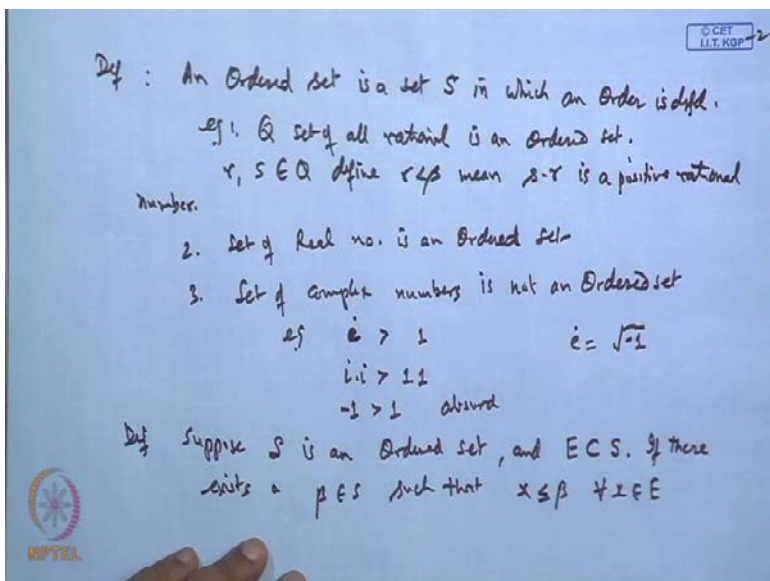 © CET
I.I.T. KGP -2
Def : An Ordered set is a set S in which an Order is defd.
eg 1. Q set of all rational is an ordered set.
r, s ∈ Q define r < s mean s-r is a positive rational
number.
2. Set of Real no. is an Ordered set
3. Set of complex numbers is not an Ordered set
eg i > 1 i = √-1
i.i > 1.1
-1 > 1 absurd
Def Suppose S is an Ordered set, and E ⊂ S. If there
exists a β ∈ S such that x ≤ β ∀ x ∈ E
NPTEL